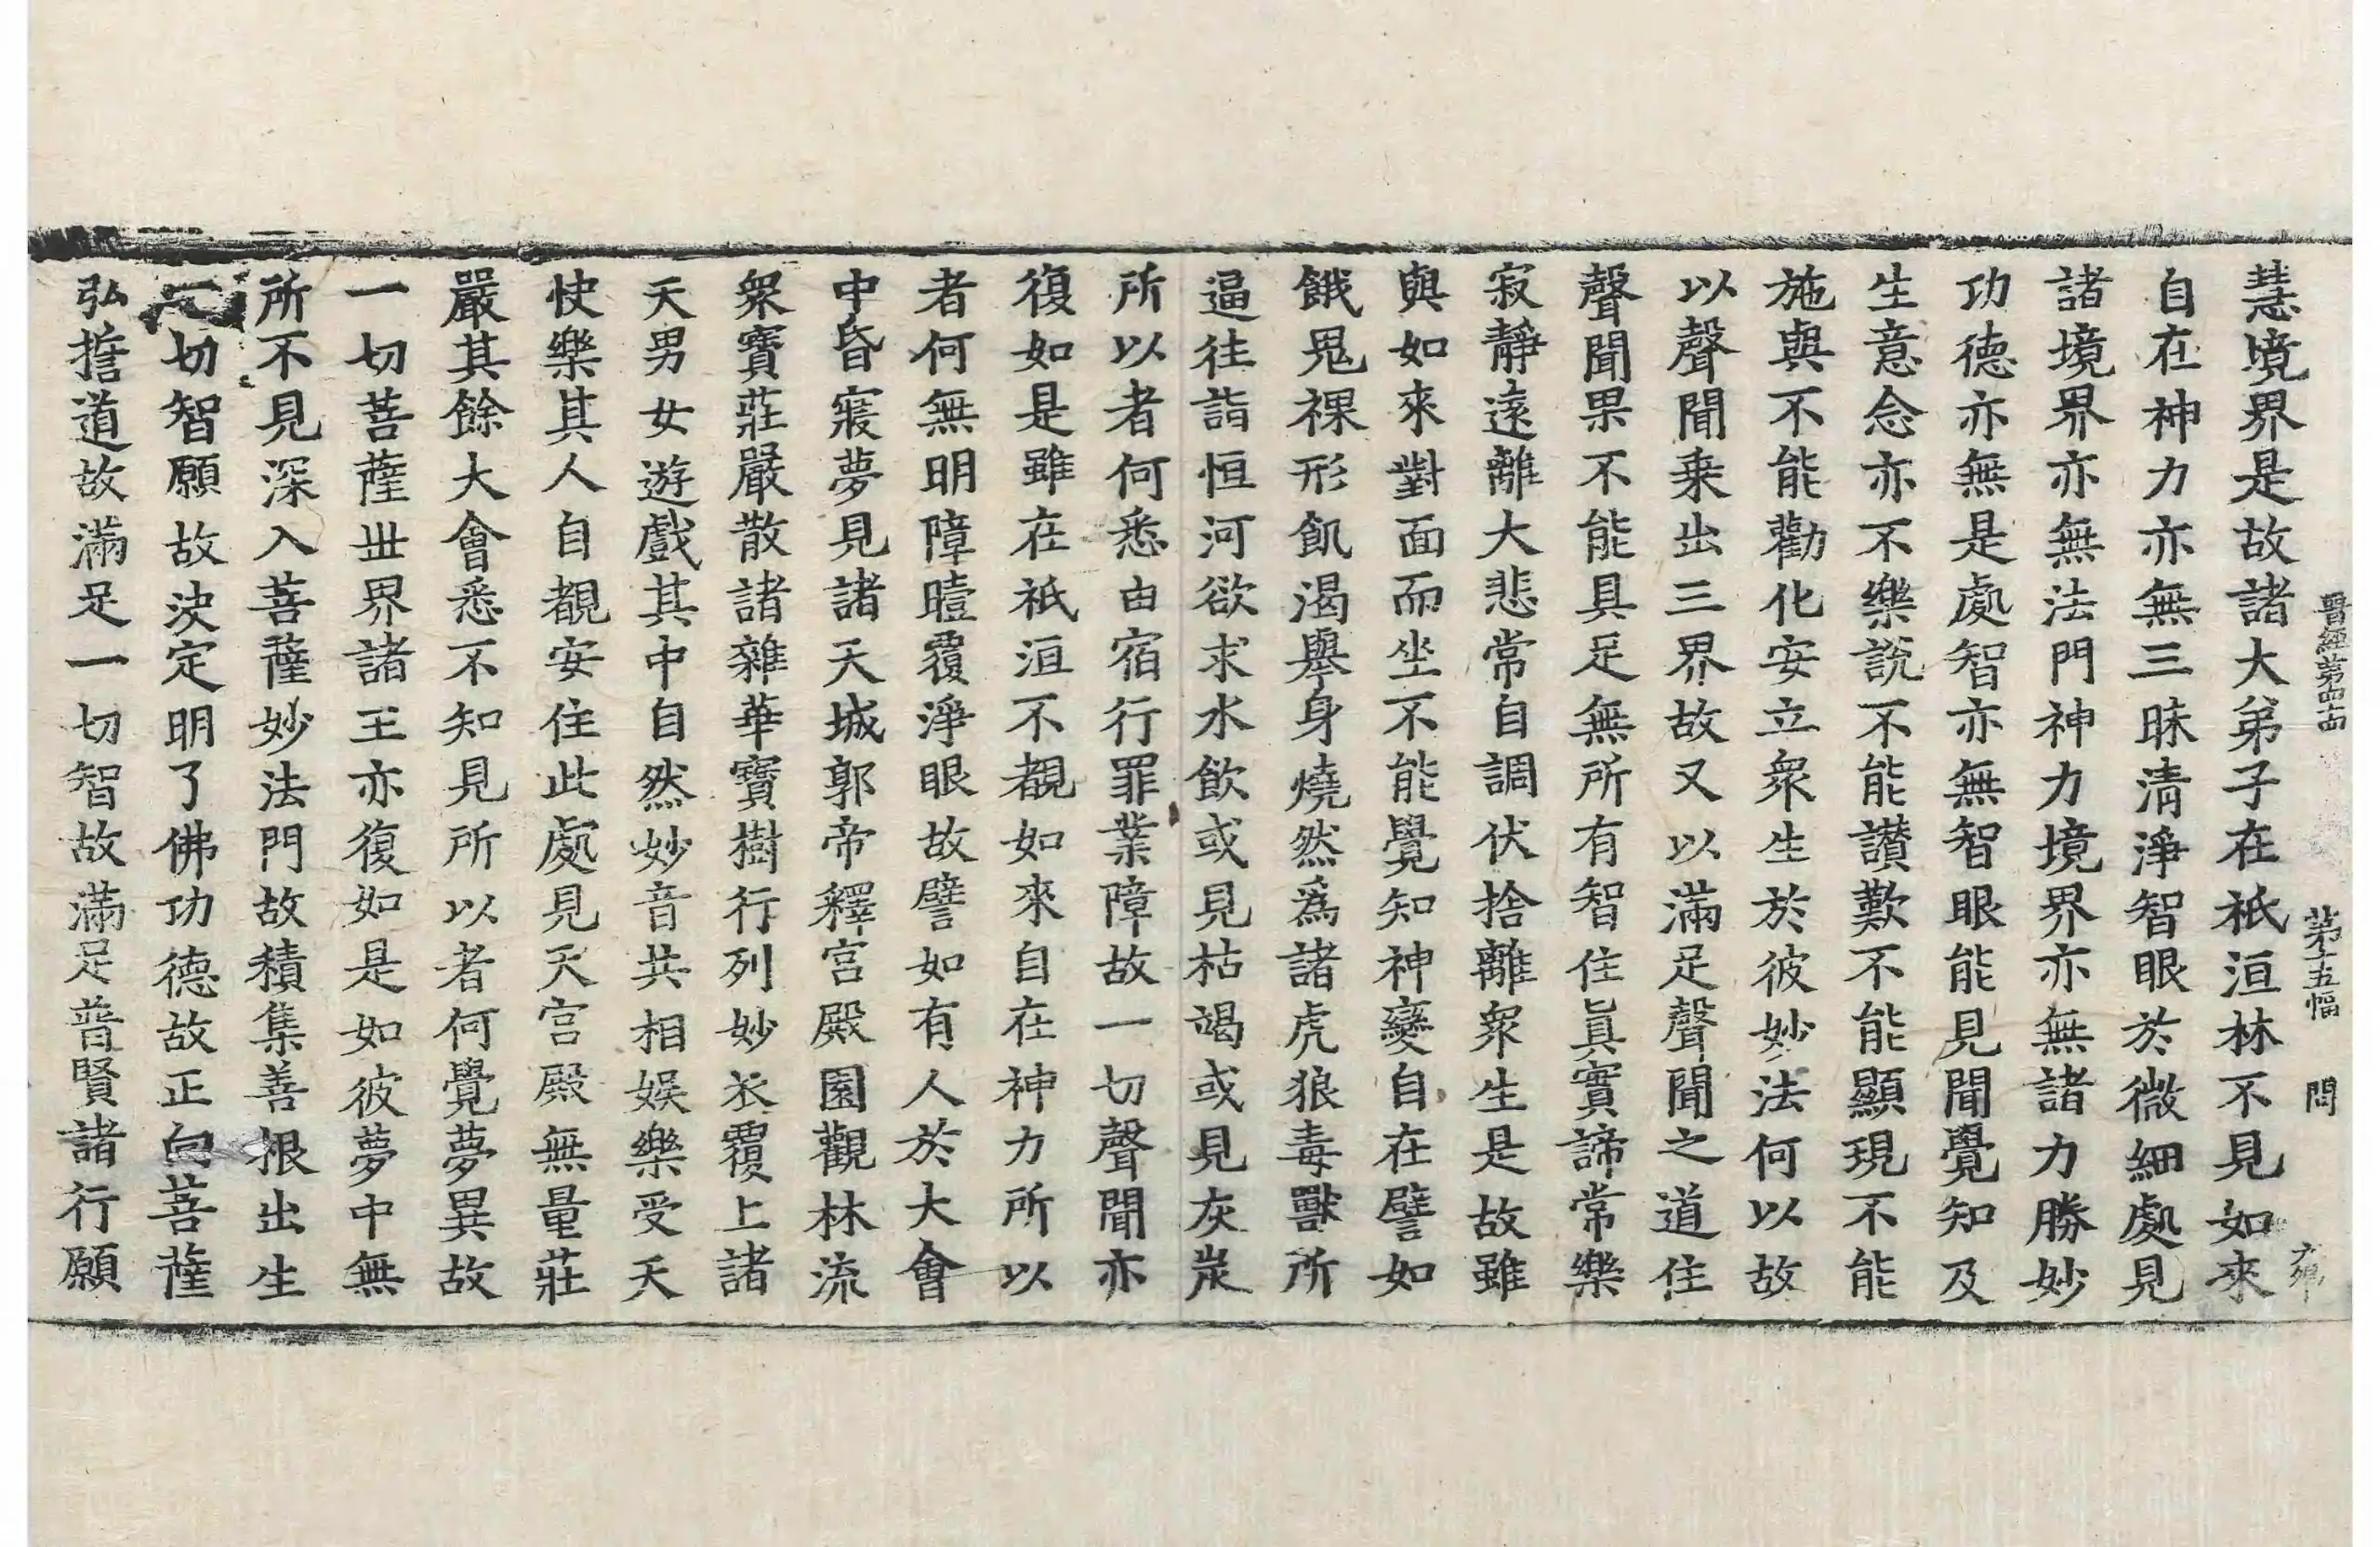 晋經第四十四 第十五幅 問
慧境界是故諸大弟子在祇洹林不見如來
自在神力亦無三昧清淨智眼於微細處見
諸境界亦無法門神力境界亦無諸力勝妙
功德亦無是處智亦無智眼能見聞覺知及
生意念亦不樂說不能讃歎不能顯現不能
施與不能勸化安立衆生於彼妙法何以故
以聲聞乗出三界故又以滿足聲聞之道住
聲聞果不能具足無所有智住眞實諦常樂
寂靜遠離大悲常自調伏捨離衆生是故雖
與如來對面而坐不能覺知神變自在譬如
餓鬼祼形飢渴舉身燒然爲諸虎狼毒獸所
逼往詣恒河欲求水飲或見枯竭或見灰炭
所以者何悉由宿行罪業障故一切聲聞亦
復如是雖在祇洹不覩如來自在神力所以
者何無明障曀覆淨眼故譬如有人於大會
中昏寢夢見諸天城郭帝釋宮殿園觀林流
衆寶莊嚴散諸雜華寶樹行列妙衣覆上諸
天男女遊戲其中自然妙音共相娛樂受天
快樂其人自覩安住此處見天宮殿無量莊
嚴其餘大會悉不知見所以者何覺夢異故
一切菩薩世界諸王亦復如是如彼夢中無
所不見深入菩薩妙法門故積集善根出生
一切智願故決定明了佛功德故正向菩薩
弘擔道故滿足一切智故滿足普賢諸行願